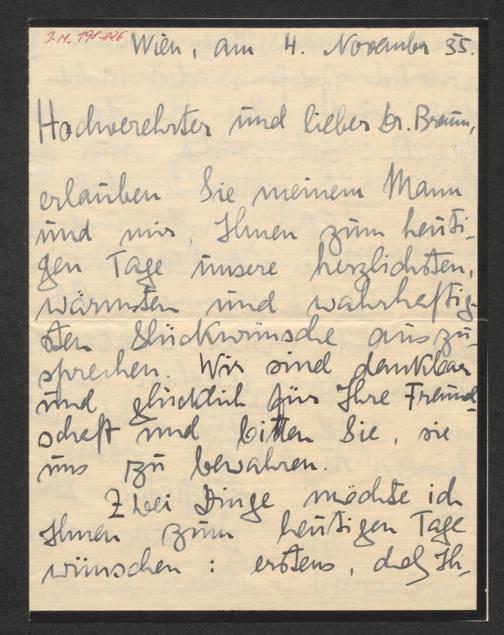 J.N. 198.826
Wien, am 4. November 35.
Hochverehrter und lieber Dr. Braun,
erlauben Sie meinem Mann
und mir, Ihnen zum heuti-
gen Tage unsere herzlichsten,
wärmsten und wahrhaftig-
sten Glückwünsche auszu-
sprechen. Wir sind dankbar
und glücklich für Ihre Freund-
schaft und bitten Sie, sie
uns zu bewahren.
Zwei Dinge möchte ich
Ihnen zum heutigen Tage
wünschen : erstens, daß Ih-